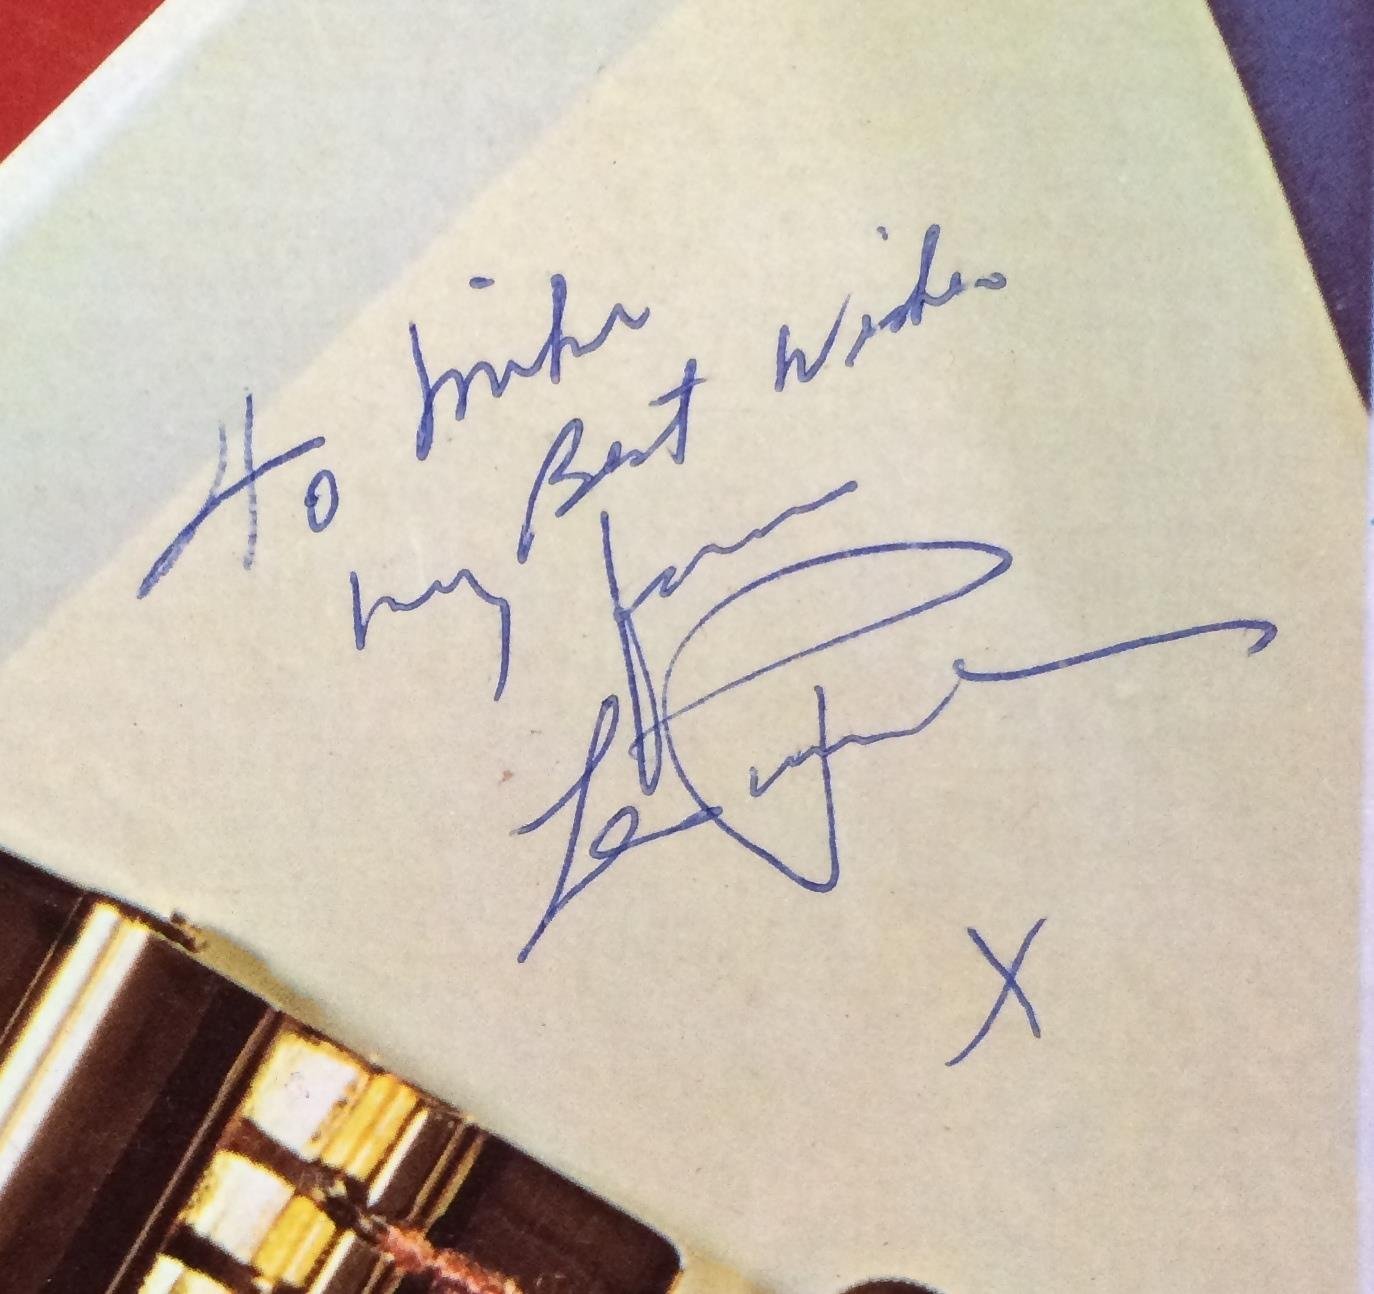 To Mike
my Best Wishes
X